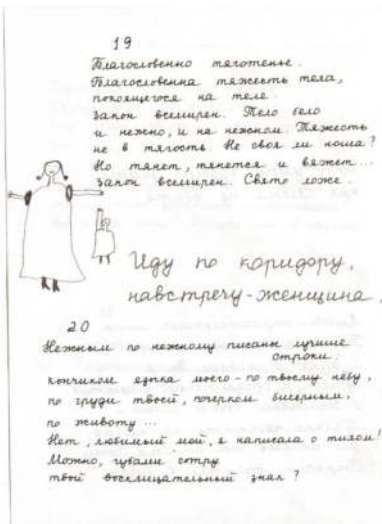 19
Благословенно тяготенье.
Благословенна тяжесть тела,
покоящегося на теле.
Закон всемирен. Тело бело
и нежно, и на нежном. Тяжесть
не в тягость. Не своя ли ноша?
Но тянет, тянется и вяжет...
Закон всемирен. Свято ложе.
Иду по коридору,
навстречу-женщина,
20
Нежным по нежному писаны лучшие
строки:
кончиком языка моего - по твоему нёбу,
по груди твоей, почерком бисерным,
по животу...
Нет, любимый мой, я написала о тихом!
Можно, губами сотру
твой восклицательный знак?